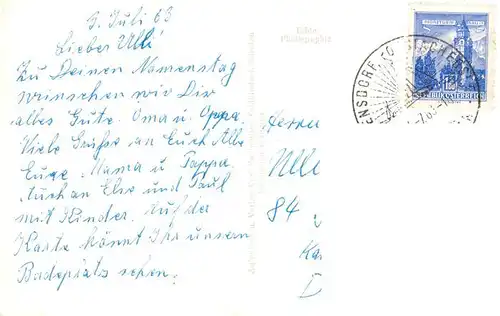 3. Juli 63
Lieber Ulli!
Zu Deinen Namenstag
wünschen wir Dir
alles Gute. Oma u. Oppa.
Viele Grüsse an Euch Alle
Eure Mama u Pappa.
Auch an Else und Paul
mit Kinder. Auf der
Karte könnt Ihr unsern
Badeplatz sehen.
Herrn
Ulli
84
ÖSTERREICH